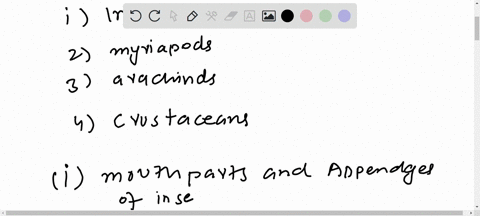 i)
2) myriapods
3) arachinds
4) crustaceans
(i) mouthparts and Appendges
of inse